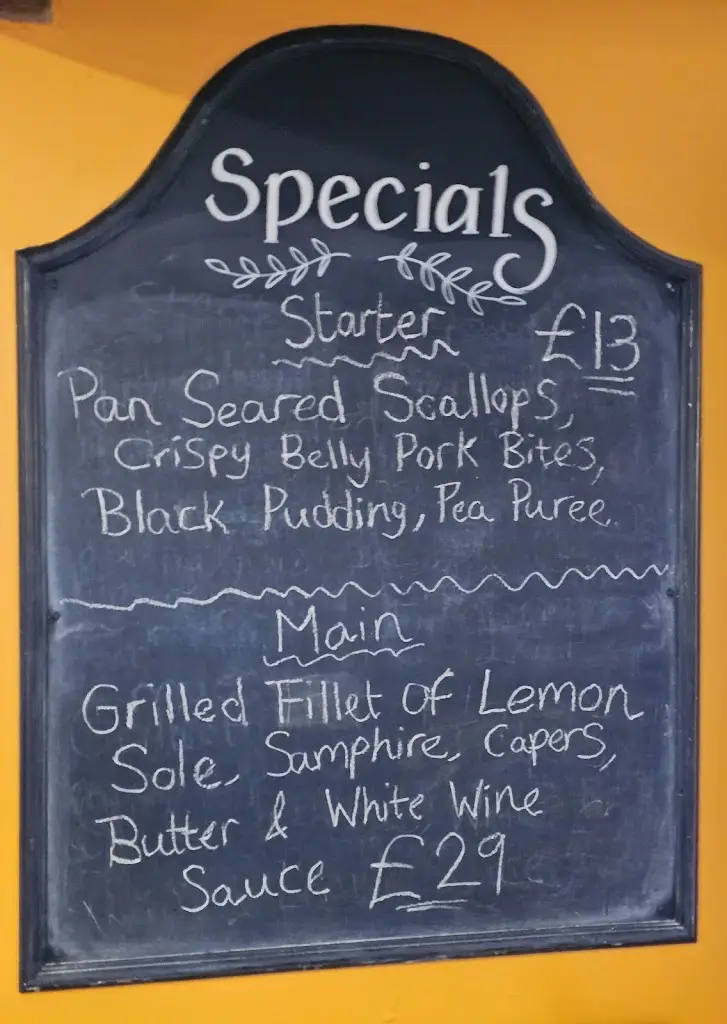 Specials
Starter £13
Pan Seared Scallops,
Crispy Belly Pork Bites,
Black Pudding, Pea Puree.
Main
Grilled Fillet of Lemon
Sole, Samphire, Capers,
Butter & White Wine
Sauce £29